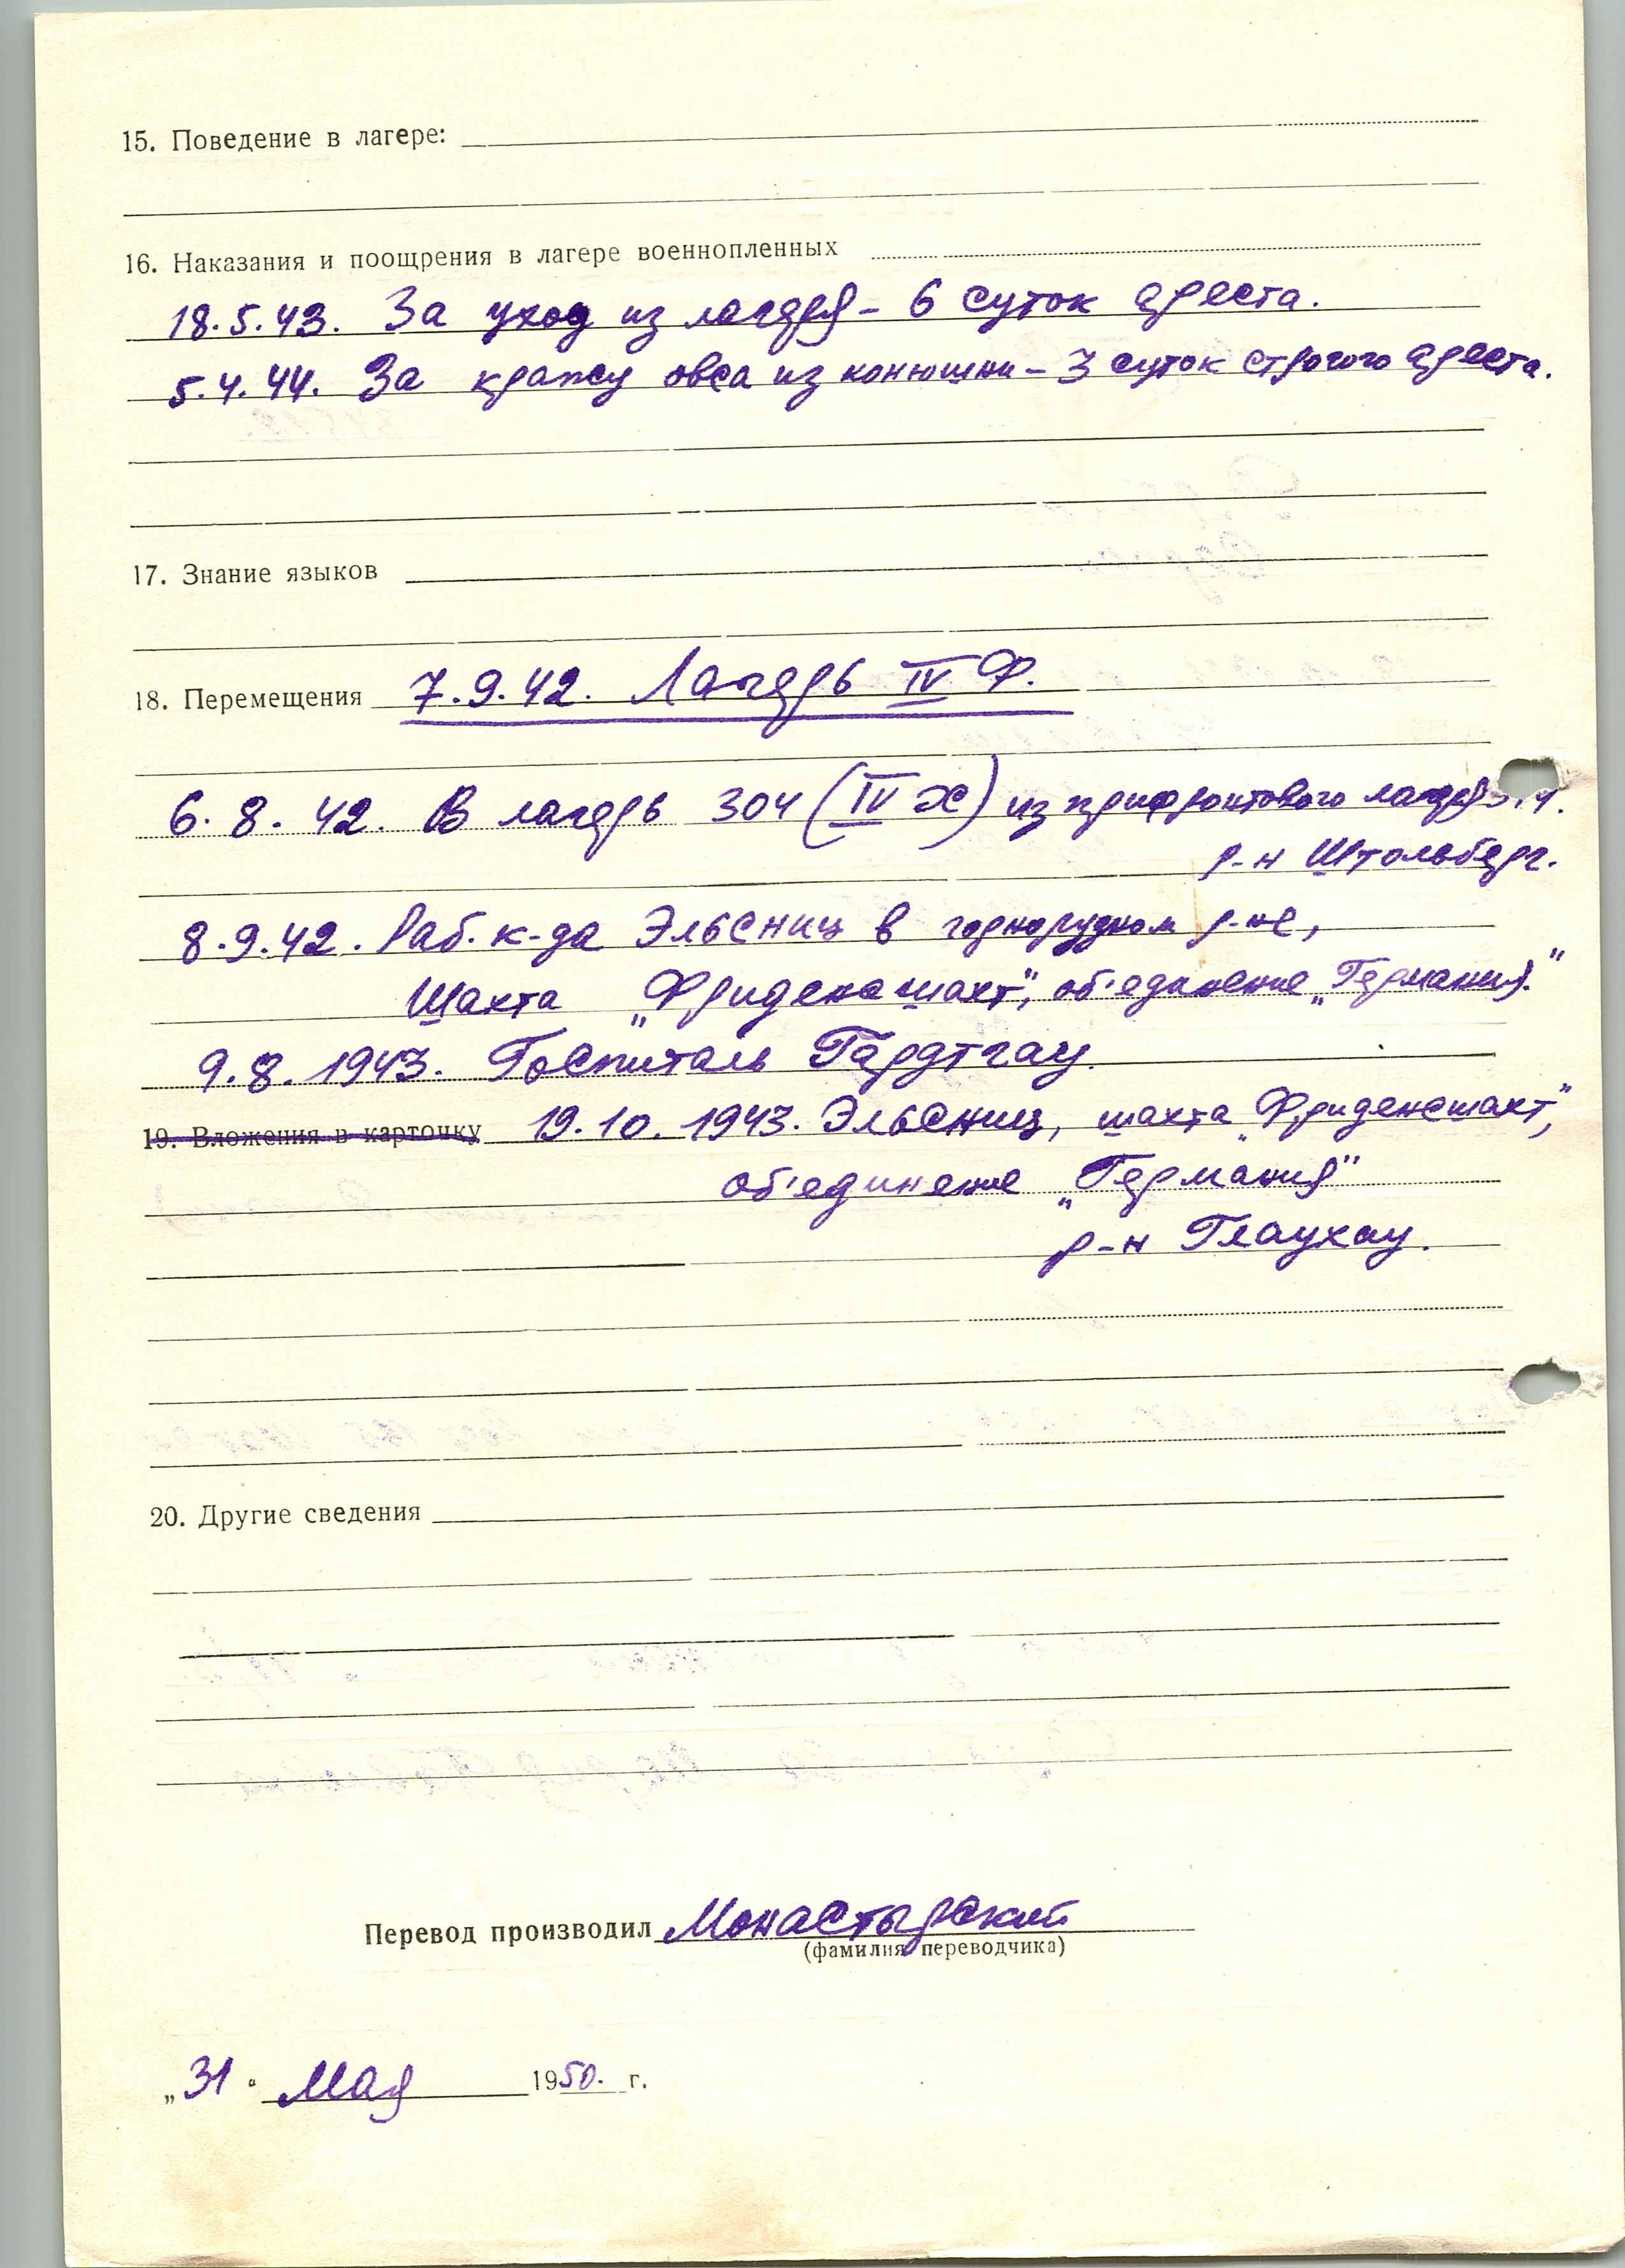 15. Поведение в лагере:
16. Наказания и поощрения в лагере военнопленных
18.5.43. За уход из лагеря – 6 суток ареста.
5.4.44. За кражу овса из конюшни – 3 суток строгого ареста.
17. Знание языков
18. Перемещения 7.9.42. Лагерь IV Ф.
6. 8. 42. В лагерь 304 (IV Х) из прифронтового лагеря
р-н Штольберг.
8.9.42. Раб. к-да Эльсниц в горнорудном р-не,
Шахта „Фриденсшахт“, об'единение „Германия."
9.8.1943. Госпиталь Гардтгау.
19. Вложения в карточку 19.10.1943. Эльсниц, шахта „Фриденсшахт“,
об'единение „Германия"
р-н Глаухау.
20. Другие сведения
Перевод производил Монастырский
(фамилия переводчика)
„31" Мая 1950. г.